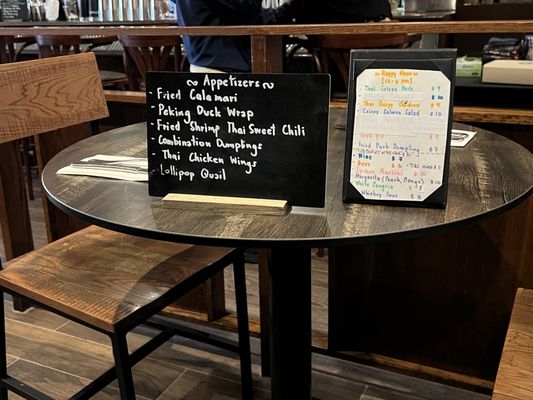 ~ Appetizers ~
- Fried Calamari
- Peking Duck Wrap
- Fried Shrimp Thai Sweet Chili
- Combination Dumplings
- Thai Chicken Wings
- Lollipop Quail
~ Happy Hour ~
Thai Crispy Pork $ 9
Thai Crispy Chicken $ 9
Crispy Salmon Salad $ 10
Pan Fried Dumpling
Wine $ 7
Beer $ 6
Lychee Martini $ 10
Margarita (Peach, Mango) $ 10
White Sangria
Whiskey Sour $ 10